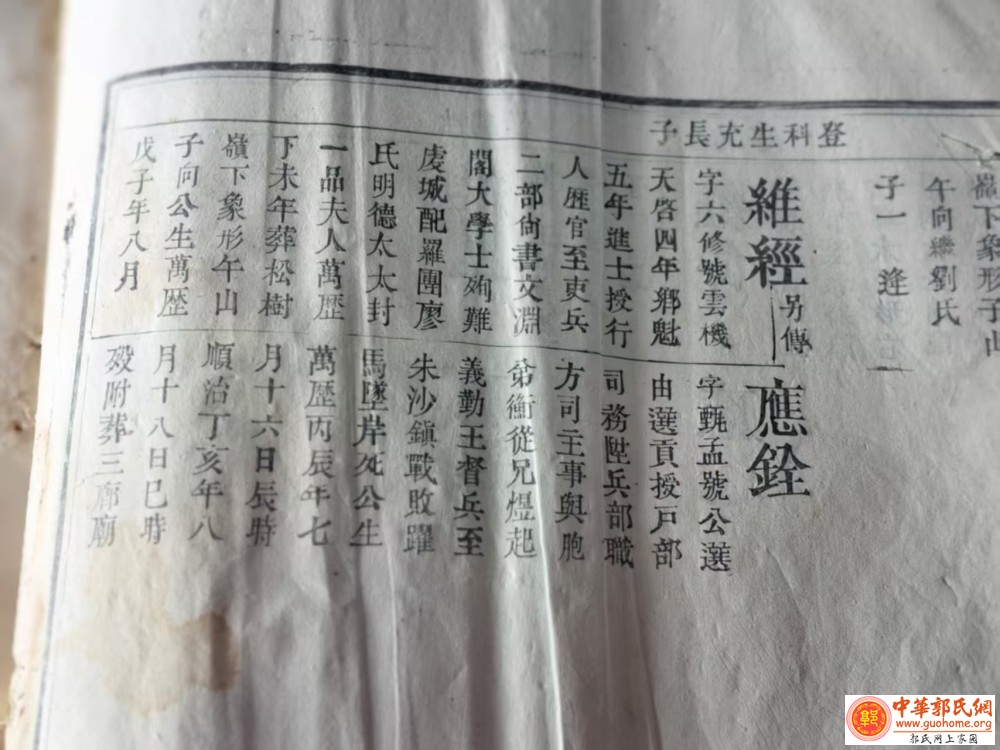 嶺下象形子山
午向繼劉氏
子一 逢
登科生充長子
維經 另傳
字六修號雲機
天啓四年鄉魁
五年進士授行
人歷官至吏兵
二部尚書文淵
閣大學士殉難
虔城配羅團廖
氏明德太太封
一品夫人萬歷
下未年葬松樹
嶺下象形午山
子向公生萬歷
戊子年八月
應銓
字甄孟號公選
由選貢授戸部
司務陞兵部職
方司主事與胞
弟衡從兄煜起
義勤王督兵至
朱沙鎮戰敗躍
馬墜岸死公生
萬歷丙辰年七
月十六日辰時
順治丁亥年八
月十八日巳時
歿附葬三廊廟
中華郭氏網
www.guohome.org
郭氏网上家园